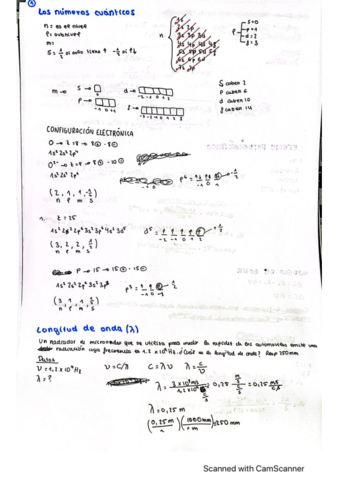 Los números cuánticos
n = es el nivel
l = subnivel
m =
s = 1/2 si solo tiene ↑ -1/2 si ↑↓
n
l s=0 p=1 d=2 f=3
m → s → 0
p → -1 0 +1
d → -2 -1 0 1 2
f → -3 -2 -1 0 1 2 3
s caben 2
p caben 6
d caben 10
f caben 14
CONFIGURACIÓN ELECTRÓNICA
O → z=8 → 8⊕ - 8⊖
1s² 2s² 2p⁴
O²⁻ → z=8 → 8⊕ - 10⊖
1s² 2s² 2p⁶
p⁶ = -1 0 1
(2, 1, 1, -1/2)
n l m s
1. z = 25
1s² 2s² 2p⁶ 3s² 3p⁶ 4s² 3d⁵
d⁵ -2 -1 0 1 2
(3, 2, 2, 1/2)
n l m s
P → 15 → 15⊕ - 15⊖
1s² 2s² 2p⁶ 3s² 3p³
p³ = -1 0 +1
(3, 1, 1, 1/2)
n l m s
Longitud de onda (λ)
Un radiador de microondas que se utiliza para medir la rapidez de los automóviles emite una
radiación cuya frecuencia es 1,2 × 10⁹ Hz. ¿Cuál es la longitud de onda? Resp 250 mm
Datos
ν = 1,2 × 10⁹ Hz
λ = ?
ν = c/λ c = λν λ = c/ν
λ = 0,25 m
(0,25 m / 1) (1000 mm / 1 m) = 250 mm
Scanned with CamScanner